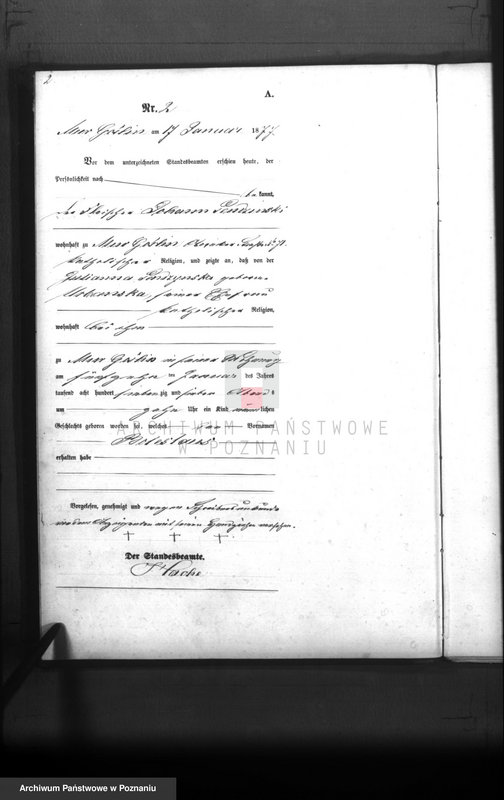 2
A.
Nr. 2
Mur. Goslin am 17 Januar 1877
Vor dem unterzeichneten Standesbeamten erschien heute, der
Persönlichkeit nach
be kannt,
der Fleischer Johann
wohnhaft zu Mur. Goslin
katholischer Religion, und zeigte an, daß von der
Julianna geborene
seiner Ehefrau
katholischer Religion,
wohnhaft bei ihm
zu Mur. Goslin in seiner Wohnung
am fünfzehn ten Januar des Jahres
tausend acht hundert siebenzig und sieben Abends
um zehn Uhr ein Kind männlichen
Geschlechts geboren worden sei, welches Vornamen
Boleslaus
erhalten habe
Vorgelesen, genehmigt und wegen Schreibensunkunde
von dem Anzeigenden mit seinem Handzeichen versehen.
† † †
Der Standesbeamte.
ARCHIWUM PAŃSTWOWE
W POZNANIU
Archiwum Państwowe w Poznaniu